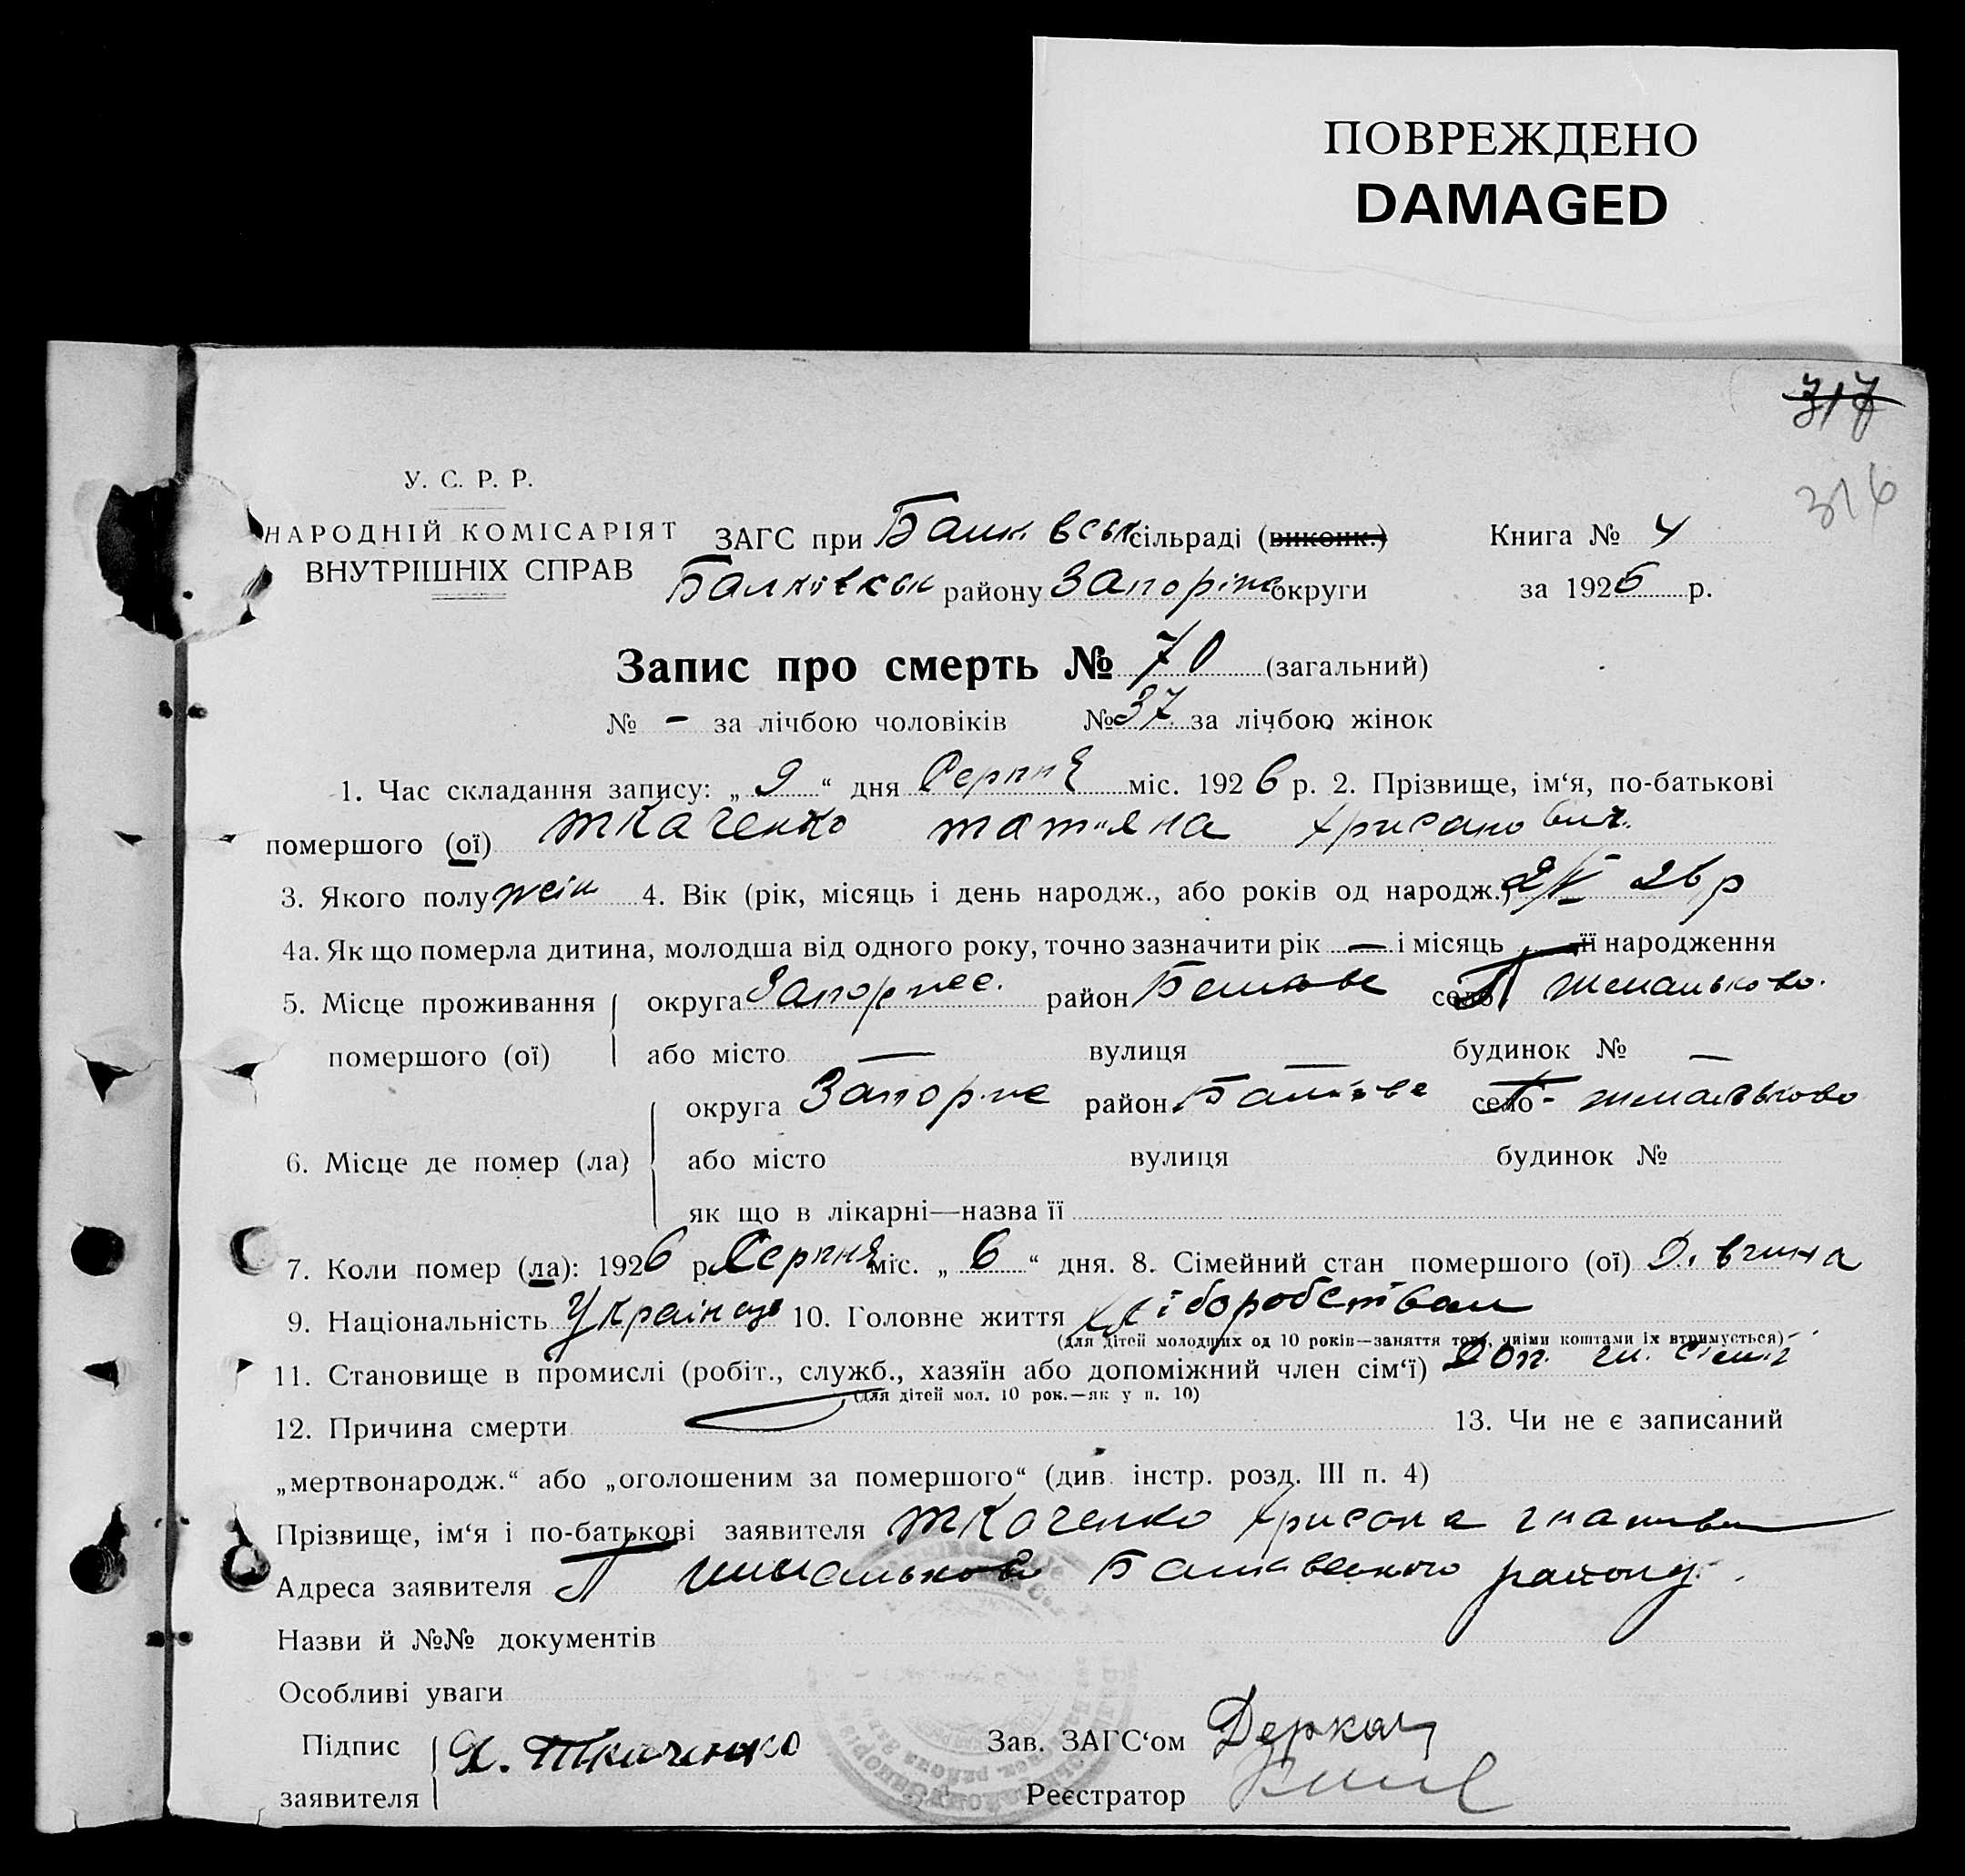 ПОВРЕЖДЕНО
DAMAGED
317
316
У. С. Р. Р.
НАРОДНІЙ КОМІСАРІЯТ
ВНУТРІШНІХ СПРАВ
ЗАГС при сільраді (виконк.) Книга № 4
району Запоріж округи за 1926 р.
Запис про смерть № 70 (загальний)
№ – за лічбою чоловіків № 37 за лічбою жінок
1. Час складання запису: „ 9 “ дня Серпня міс. 1926 р. 2. Прізвище, ім‘я, по-батькові
помершого (ої) Ткаченко Тат"яна Хрисанович.
3. Якого полу жін 4. Вік (рік, місяць і день народж., або років од народж.) 26 р
4а. Як що померла дитина, молодша від одного року, точно зазначити рік — і місяць — її народження
5. Місце проживання округа район село
помершого (ої) або місто — вулиця — будинок № —
округа Запориже район село
6. Місце де помер (ла) або місто вулиця будинок №
як що в лікарні—назва її
7. Коли помер (ла): 1926 р. Серпня міс. „ 6 “ дня. 8. Сімейний стан помершого (ої) Дівчина
9. Національність 10. Головне життя Хліборобством
(для дітей молодших од 10 років—заняття того, чиїми коштами їх втримується)
11. Становище в промислі (робіт., служб., хазяїн або допоміжний член сім‘ї) Доп. чл. сімї
(для дітей мол. 10 рок.—як у п. 10)
12. Причина смерти 13. Чи не є записаний
„мертвонародж.“ або „оголошеним за помершого“ (див. інстр. розд. III п. 4)
Прізвище, ім‘я і по-батькові заявителя Ткаченко Хрисана
Адреса заявителя району
Назви й №№ документів
Особливі уваги
Підпис Х. Ткаченко Зав. ЗАГС‘ом Деркач
заявителя Реєстратор